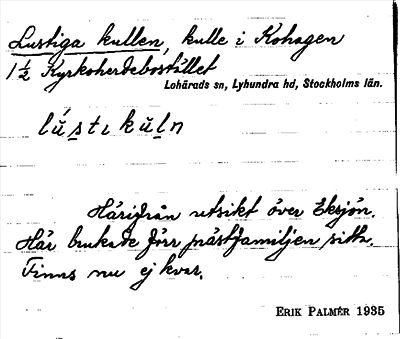 Lustiga kullen, kulle i Kohagen
1 ½ Kyrkoherdebostället
Lohärads sn, Lyhundra hd, Stockholms län.
lú̀stı kuln
Härifrån utsikt över Eksjön.
Här brukade förr prästfamiljen sitta.
Finns nu ej kvar.
ERIK PALMÉR 1935